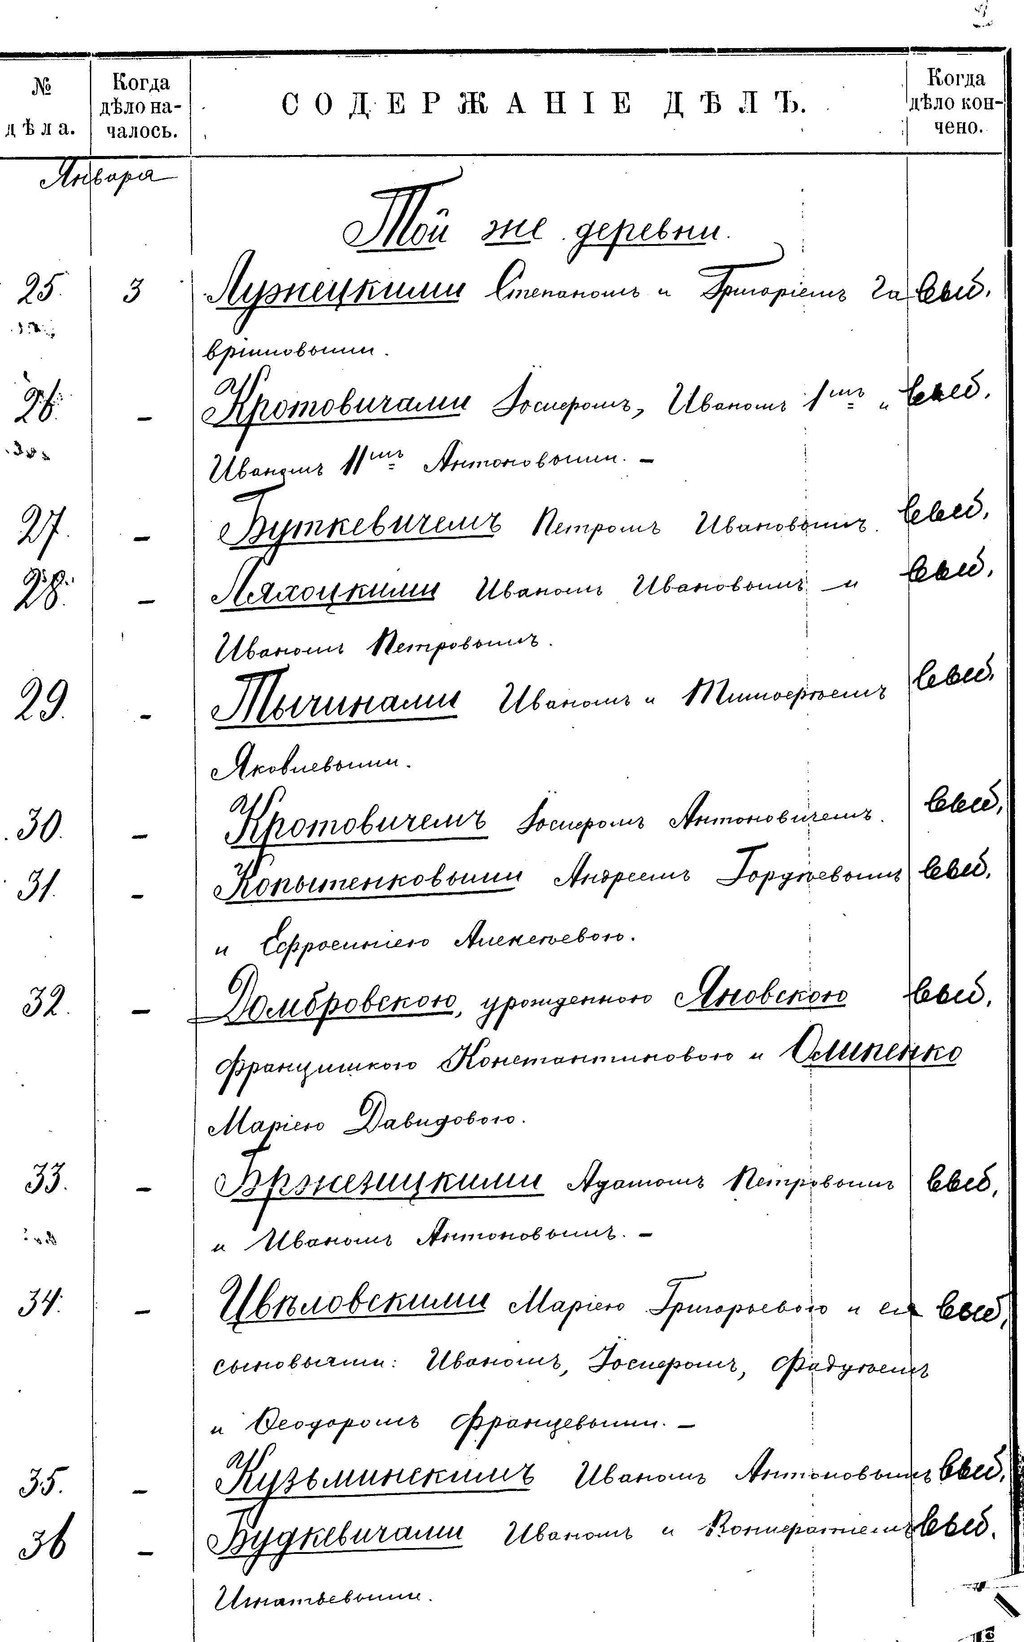 № дѣла.
Когда дѣло началось.
СОДЕРЖАНІЕ ДѢЛЪ.
Когда дѣло кончено.
Января
Той же деревни.
25. 3 Лужецкими Степаномъ и Григоріемъ Га выб.
вриловыми.
26. – Кротовичами Іосифомъ, Иваномъ 1мъ и выб.
Иваномъ 11мъ Антоновыми. –
27. – Буткевичемъ Петромъ Ивановымъ. выб.
28. – Ляхоцкими Иваномъ Ивановымъ и выб.
Иваномъ Петровымъ.
29. – Тычинами Иваномъ и Тимофѣемъ выб.
Яковлевыми.
30. – Кротовичемъ Іосифомъ Антоновичемъ. выб.
31. – Копытенковыми Андреемъ Гордѣевымъ выб.
и Ефросиніею Алексѣевою.
32. – Домбровскою, урожденною Яновскою выб.
Францишкою Константиновою и Олипенко
Маріею Давидовою.
33. – Бржезицкими Адамомъ Петровымъ выб.
и Иваномъ Антоновымъ. –
34. – Цвѣловскими Маріею Григорьевою и ея выб.
сыновьями: Иваномъ, Іосифомъ, Фадѣемъ
и Ѳеодоромъ Францевыми. –
35. – Кузьминскимъ Иваномъ Антоновымъ выб.
36 – Будкевичами Иваномъ и выб.
Игнатьевыми.